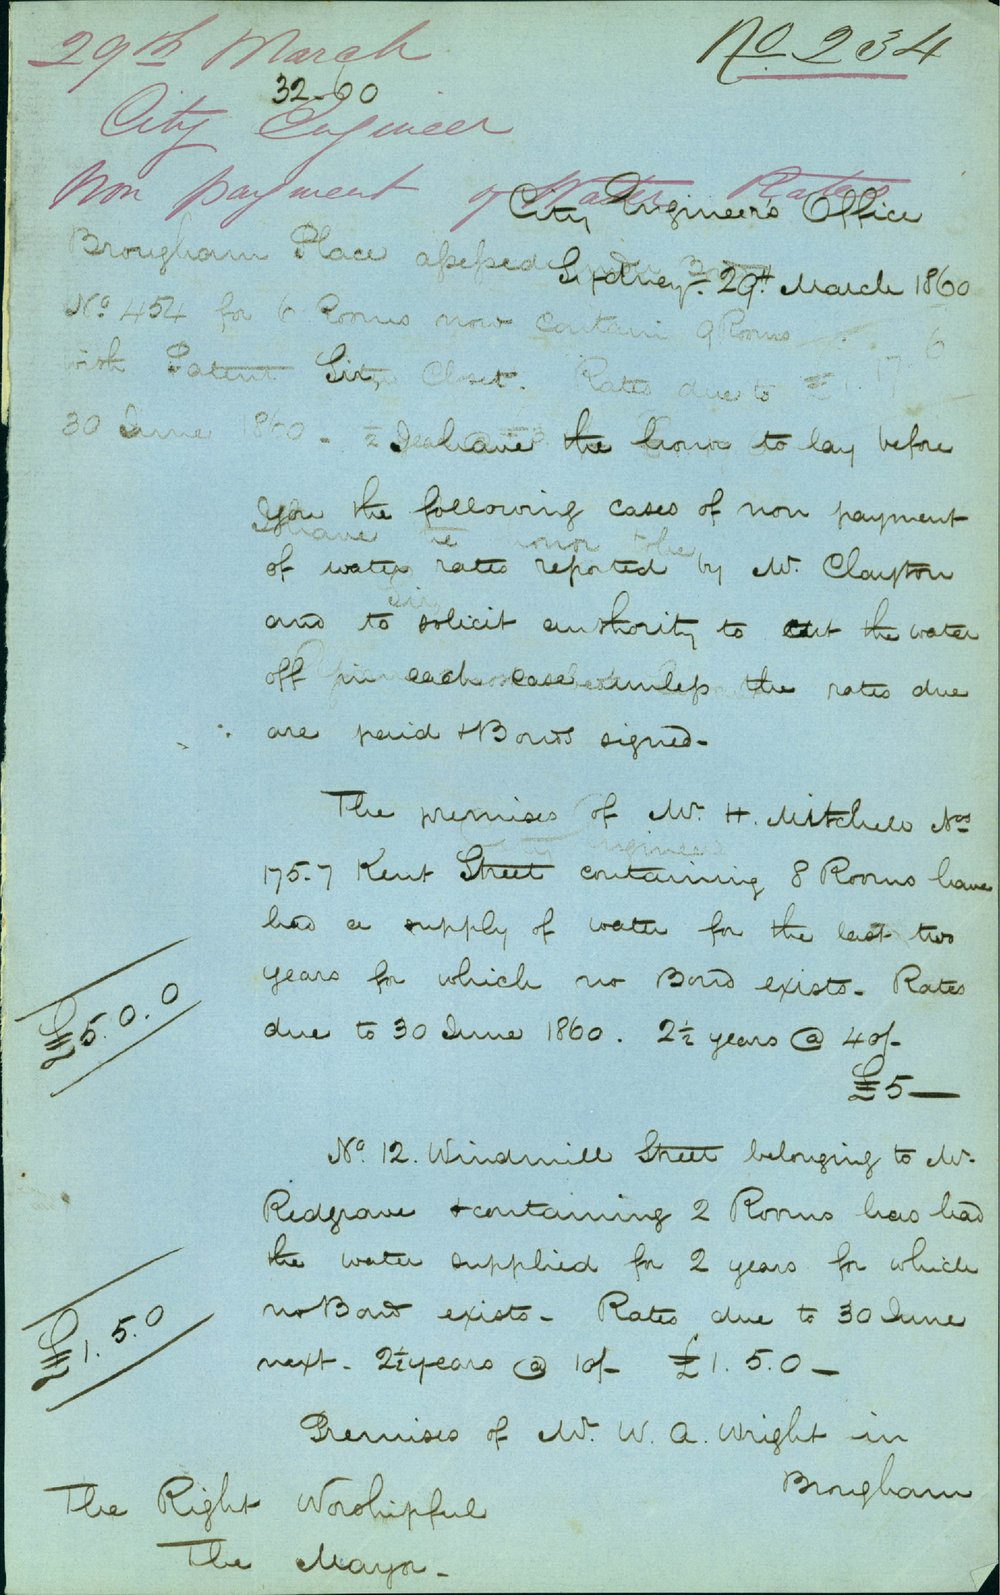 29th March
No 234
32-60
City Engineer
Non payment of Water Rates
City Engineer's Office
Sydney. 29th March 1860
Brougham Place assessed
No. 454 for 6 Rooms now contain 9 Rooms
with Patent Closet. Rates due to £1.17.6
30 June 1860 - ½ Year @
Sir,
I have the honor to lay before
you the following cases of non payment
I have the honor to be
of water rates reported by Mr. Clayton
Sir
and to solicit authority to cut the water
off in each case unless the rates due
are paid + Bonds signed-
The premises of Mr. H. Mitchell Nos
City Engineer
175-7 Kent Street containing 8 Rooms have
had a supply of water for the last two
years for which no Bond exists- Rates
due to 30 June 1860. 2½ years @ 40/-
£5—
£5.0.0
No. 12. Windmill Street belonging to Mr.
Redgrave + containing 2 Rooms has had
the water supplied for 2 years for which
no Bond exists- Rates due to 30 June
next- 2½ years @ 10/- £1.5.0—
£1.5.0
Premises of Mr. W. A. Wright in
Brougham
The Right Worshipful
The Mayor-